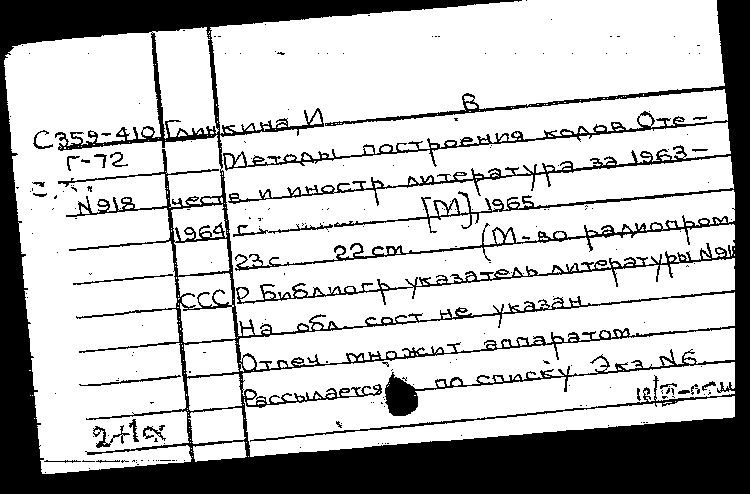 С359-410 Глинкина, И В
Г-72 Методы построения кодов Оте=
N918 честв. и иностр. литература за 1963-
1964 г. [М], 1965.
23 с. 22 см. (М-во радиопром
СССР. Библиогр указатель литературы N918
На обл. сост не указан.
Отпеч. множит аппаратом.
Рассылается по списку Экз. N6.
2+1